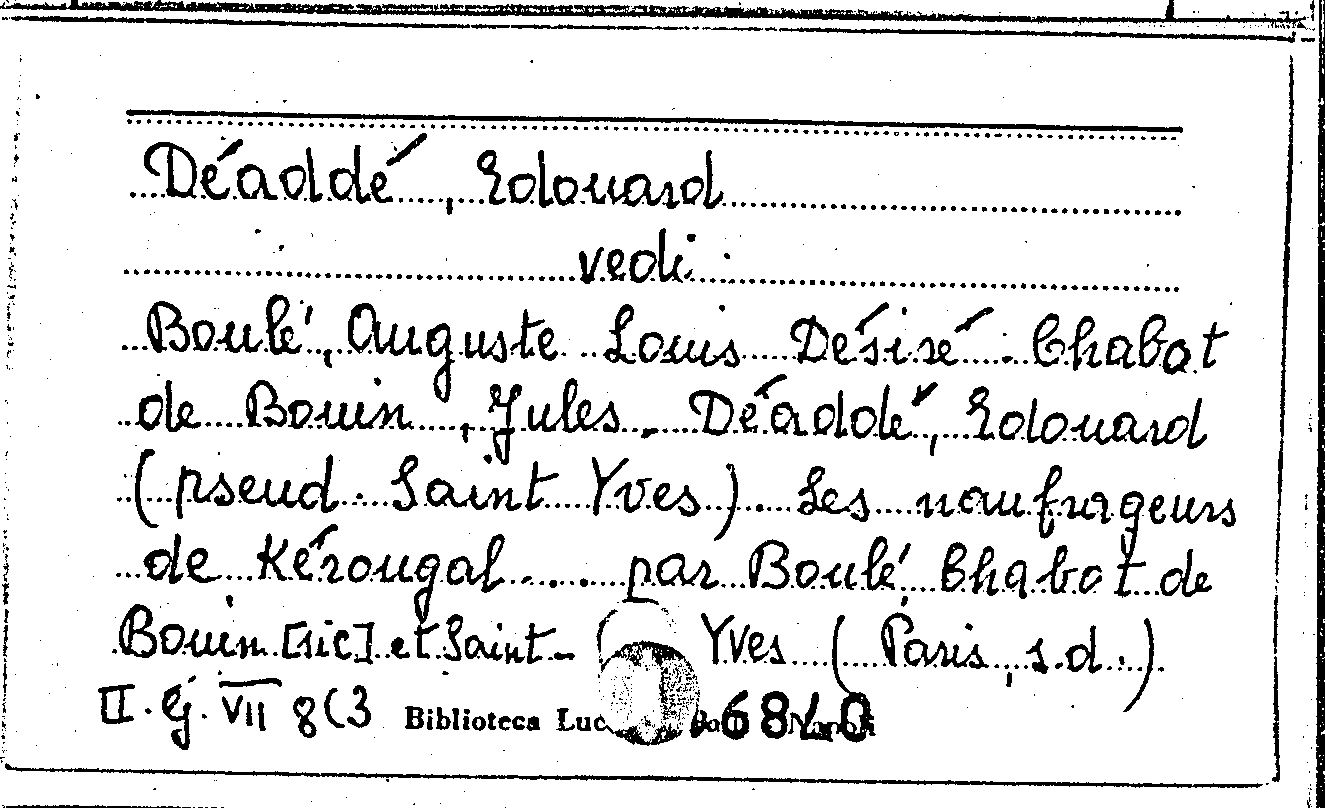 Déaddé, Edouard
vedi
Boulé, Auguste Louis Désiré. Chabot
de Bouin, Jules. Déaddé, Edouard
(pseud. Saint Yves). Les naufrageurs
de Kérougal .... par Boulé, Chabot de
Bouin [sic] et Saint- Yves (Paris, s.d.).
II. G. VII 8(3 Biblioteca Luc